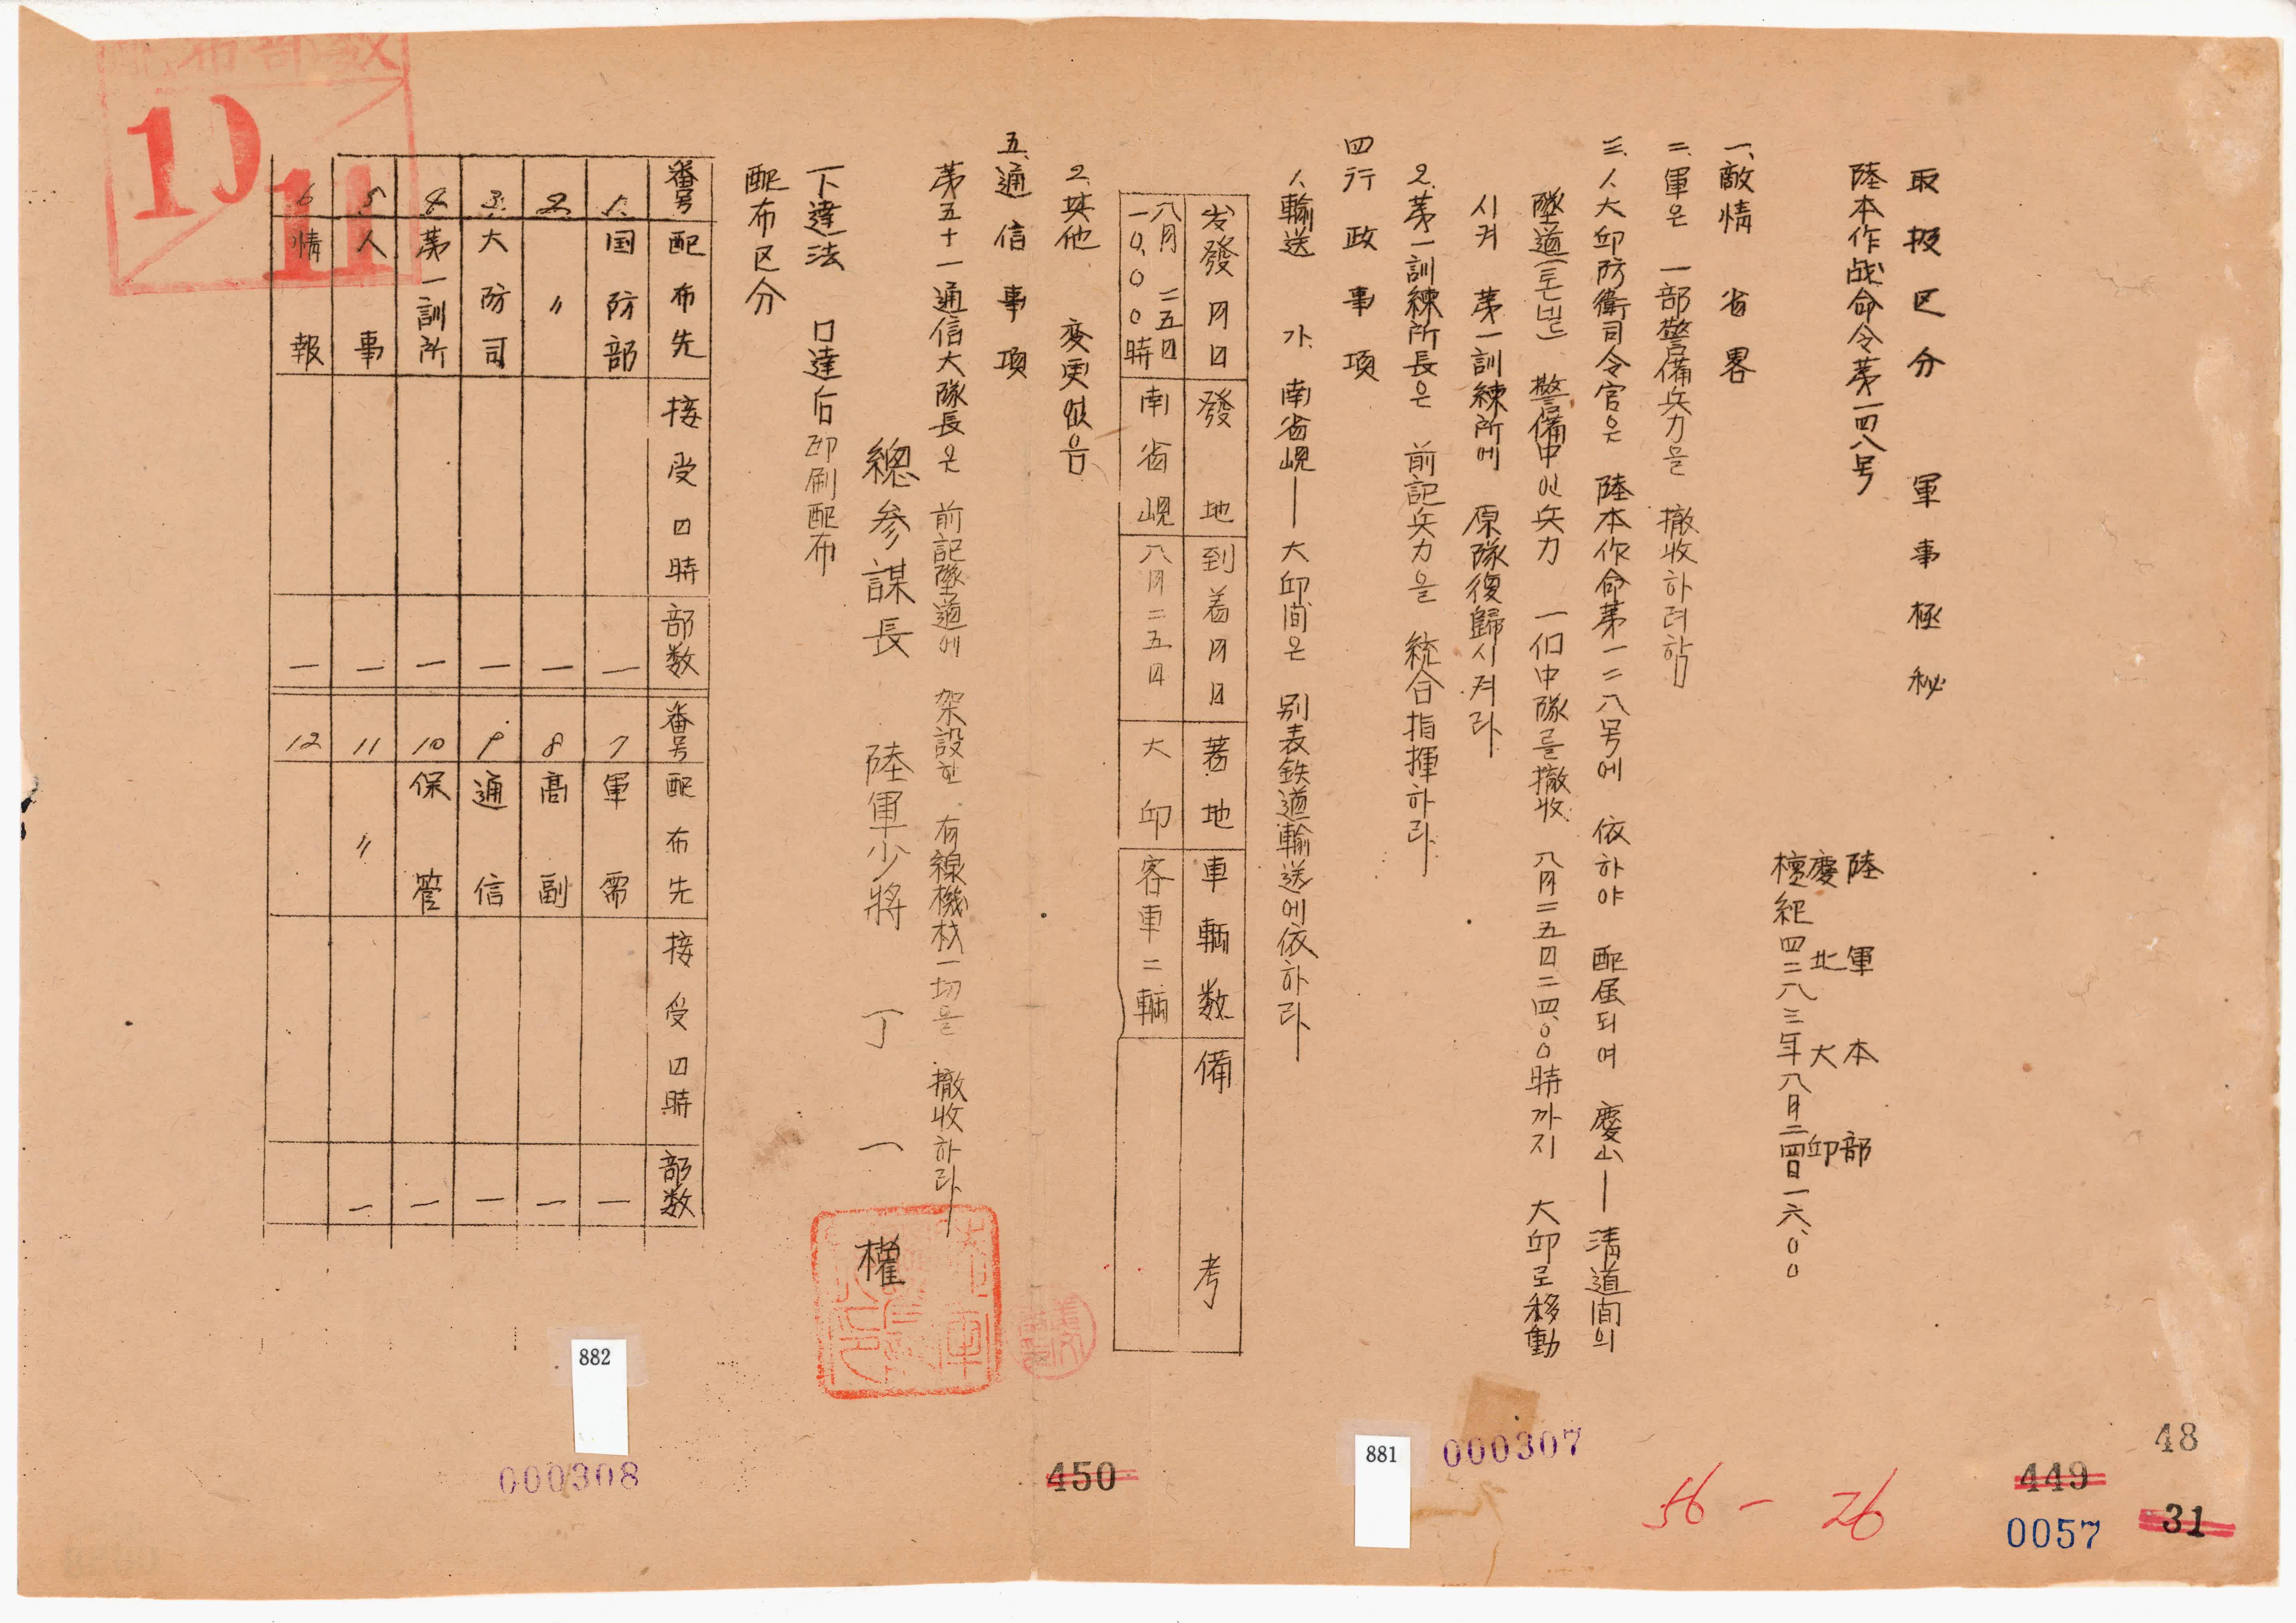 取扱区分 軍事極秘
陸本作战命令第一四八号
陸軍本部
慶北大邱
檀紀四二八三年八月二四日一六.00
一、敵情 省畧
二、軍은 一部警備兵力을 撤收하려함
三、1.大邱防衛司令官은 陸本作命第一二八号에 依하야 配属되여 慶山—清道間의
隧道(톤넬) 警備中인兵力 一個中隊를撤收 八月二五日二四.00時까지 大邱로移動
시켜 第一訓練所에 原隊復歸시켜라
2.第一訓練所長은 前記兵力을 統合指揮하라
四 行政事項
1.輸送 가. 南省峴—大邱間은 別表鉄道輸送에依하라
发發月日 發地 到着月日 著地 車輌数 備考
八月二五日 一0.00時 南省峴 八月二五日 大邱 客車二輌
2.其他 変更없음
五.通信事項
第五十一通信大隊長은 前記隧道에 架設한 有線機材一切을 撤收하라
總參謀長 陸軍少將 丁一權
下達法 口達后印刷配布
配布区分
番号 配布先 接受日時 部数 番号 配布先 接受日時 部数
1. 国防部 一 7 軍需 一
2. 〃 一 8 高副 一
3. 大防司 一 9 通信 一
4. 第一訓所 一 10 保管 一
5. 人事 一 11 〃 一
6 情報 一 12
配布部数
10
11
882
000308
450
881
000307
56-26
48
449
0057
31